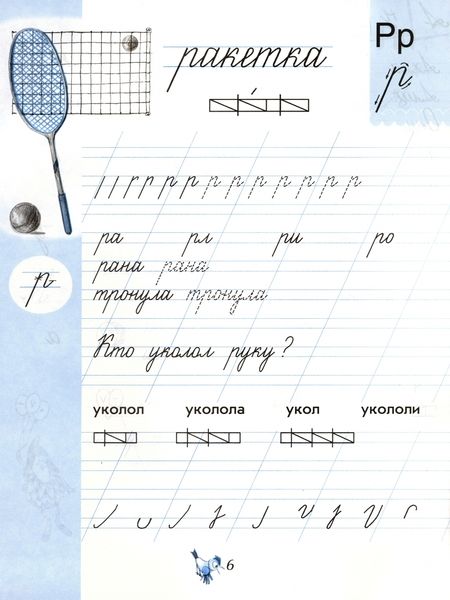 Рр
ракетка
р
р р р р р р р р р р
ра рл ри ро
р
рана рана
тронула тронула
Кто уколол руку?
уколол уколола укол укололи
6